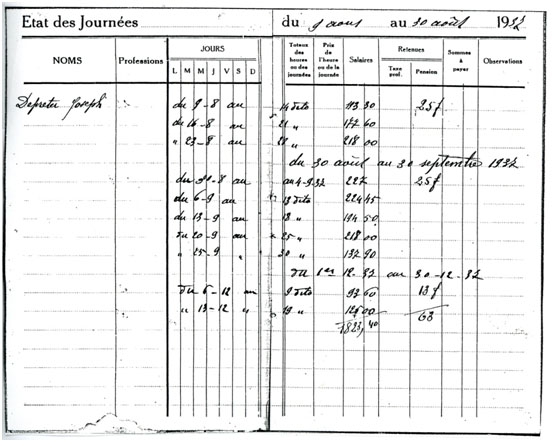 Etat des Journées du 9 aout au 30 août 1932
NOMS Professions JOURS L M M J V S D Totaux des heures ou des journées Prix de l'heure ou de la journée Salaires Retenues Taxe prof. Pension Sommes à payer Observations
Joseph du 9-8 au 14 dito 113 30 25f
du 16-8 au 21 " 177 60
" 23-8 au 28 " 218 00
du 30 août au 30 septembre 1932
au 4-9-32 227 25f
du 6-9 au 13 dito 224 45
du 13-9 au 18 " 194 50
du 20-9 au 25 " 218 00
" 25-9 " 30 " 132 90
du 1er 12-32 au 30-12-32
du 6-12 au 9 dito 92 60 13f
" 13-12 " 19 " 125 00 63
1823,40